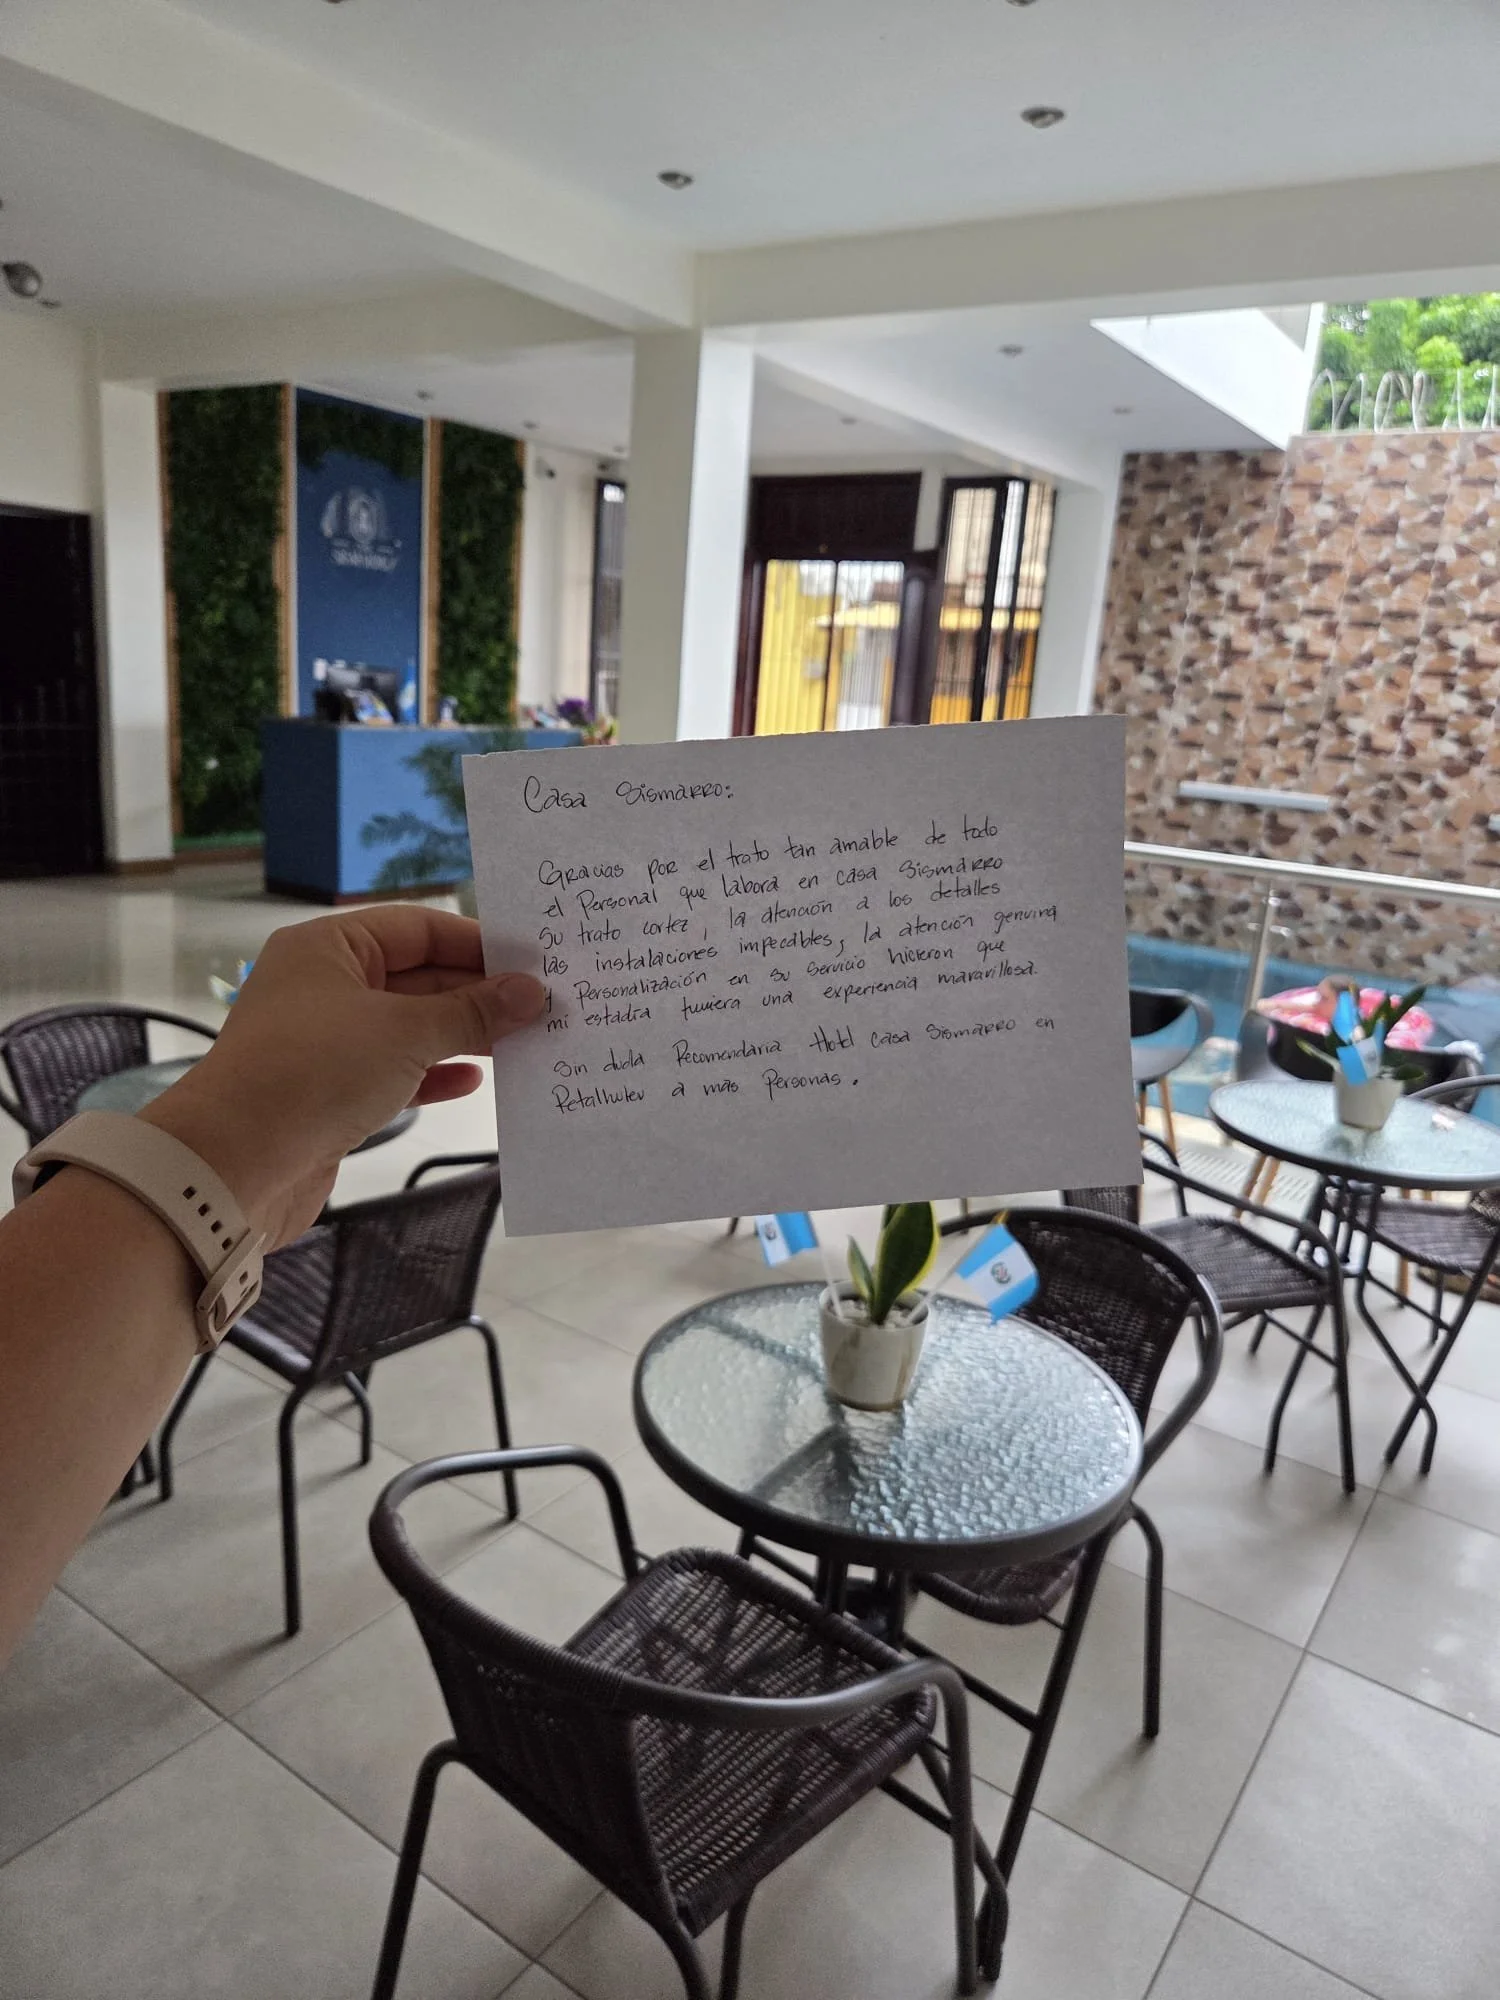 Casa Sismarro:
Gracias por el trato tan amable de todo
el Personal que labora en casa Sismarro
su trato cortez, la atención a los detalles
las instalaciones impecables, la atención genuina
y Personalización en su servicio hicieron que
mi estadía tuviera una experiencia maravillosa.
Sin duda Recomendaria Hotel casa Sismarro en
Retalhuleu a más Personas.